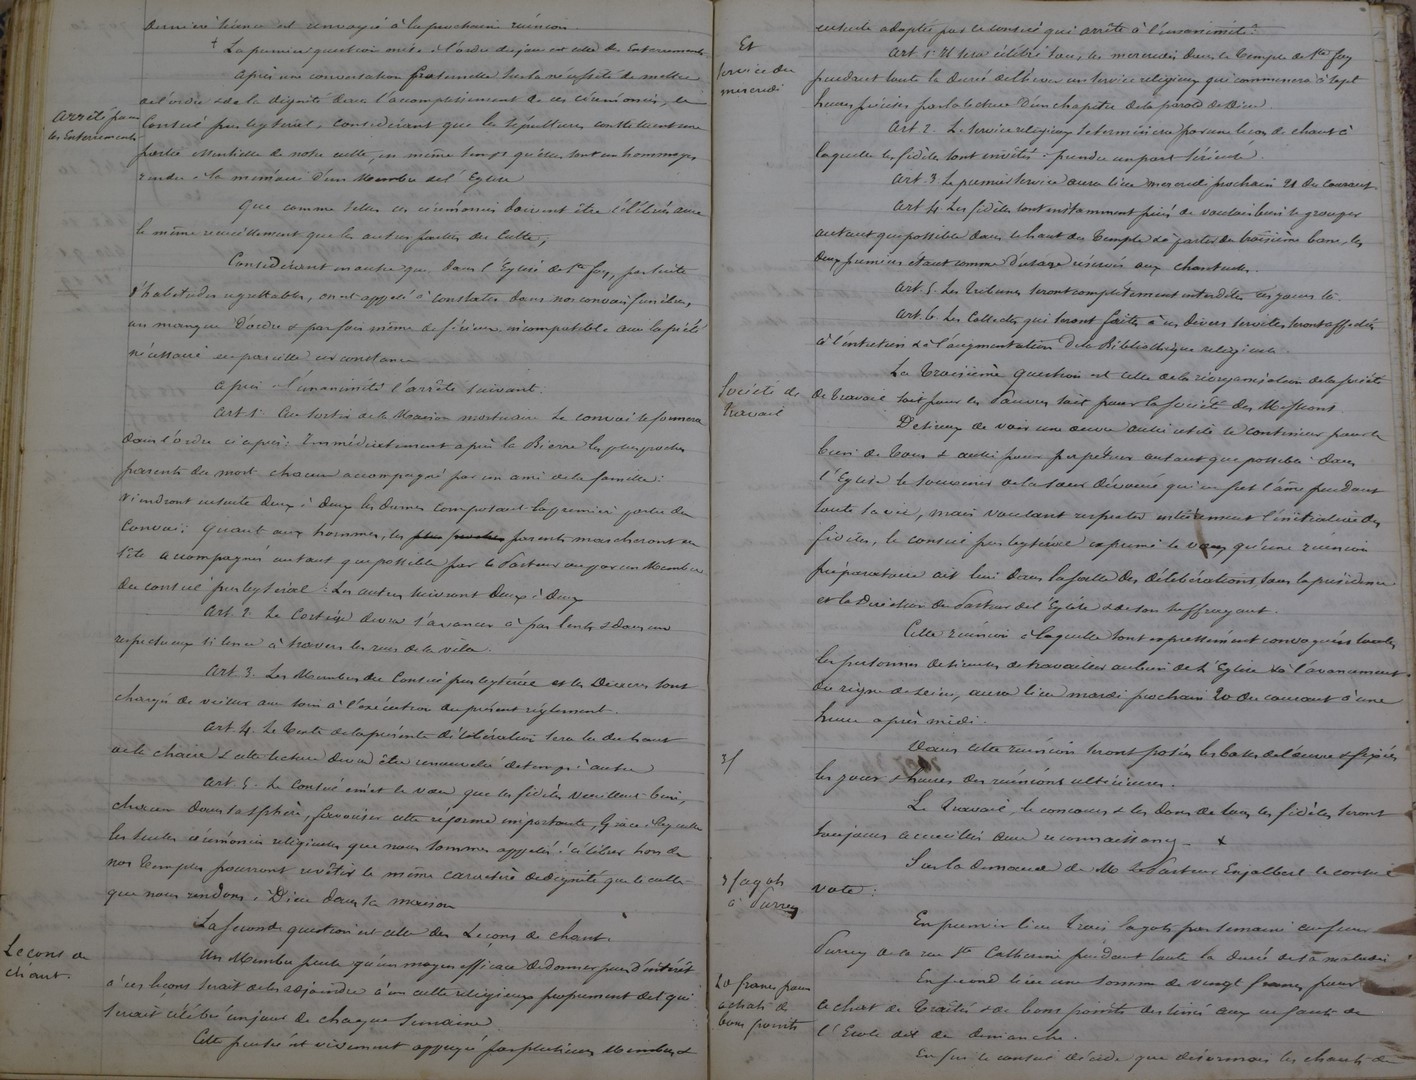 dernière séance est renvoyée à la prochaine réunion.
+ La première question mise à l'ordre du jour est celle des Enterrements
Après une conversation fraternelle sur la nécessité de mettre
de l'ordre & de la dignité dans l'accomplissement de ces cérémonies, le
Arrêté pour
les Enterrements
Conseil presbytéral, considérant que les sépultures constituent une
partie essentielle de notre culte, en même temps qu'elles sont un hommage
rendu à la mémoire d'un Membre de l'Eglise
Que comme telles ces cérémonies doivent être célébrées avec
le même recueillement que les autres parties du Culte,
Considérant en outre que, dans l'Eglise de Ste Foy, par suite
d'habitudes regrettables, on est appelé à constater dans nos convois funèbres,
un manque d'ordre & parfois même de sérieux incompatible avec la piété
nécessaire en pareille circonstance
a pris à l'unanimité l'arrêté suivant.
Art 1er Au sortir de la Maison mortuaire le convoi se formera
dans l'ordre ci après: Immédiatement après la Bierre les plus proches
parents du mort chacun accompagné par un ami de la famille:
Viendront ensuite deux à deux les dames composant la première partie du
Convoi; quant aux hommes, les parents marcheront en
tête accompagnés autant que possible par le Pasteur ou par un Membre
du conseil presbytéral: Les autres suivront deux à deux
Art 2. Le Cortège devra s'avancer à pas lents & dans un
respectueux silence à travers les rues de la ville.
Art 3. Les Membres du Conseil presbytéral et les Diacres sont
chargés de veiller avec soin à l'exécution du présent règlement.
Art 4. Le Texte de la présente délibération sera lu du haut
de la chaire & cette lecture devra être renouvelée de temps à autre
Art 5. Le Conseil émet le vœu que les fidèles veuillent bien,
chacun dans sa sphère, favoriser cette réforme importante, grâce à laquelle
les seules cérémonies religieuses que nous sommes appelés à célébrer hors de
nos Temples pourront revêtir le même caractère de dignité que le culte
que nous rendons à Dieu dans sa maison
La seconde question est celle des Leçons de chant.
Leçons de
chant.
Un Membre pense qu'un moyen efficace de donner plus d'intérêt
à ces leçons serait de les adjoindre à un culte religieux proprement dit qui
serait célébré un jour de chaque semaine.
Cette pensée est vivement appuyée par plusieurs Membres &
ensuite adoptée par le conseil qui arrête à l'unanimité:
Et
service du
mercredi
Art 1er Il sera célébré tous les mercredis dans le Temple de Ste Foy
pendant toute la durée de l'hiver un service religieux qui commencera à sept
heures précises par la lecture d'un chapitre de la parole de Dieu.
Art 2. Le service religieux se terminera par une leçon de chant à
laquelle les fidèles sont invités à prendre une part sérieuse.
Art. 3 Le premier service aura lieu mercredi prochain 21 du courant
Art 4. Les fidèles sont instamment priés de vouloir bien se grouper
autant que possible dans le haut du Temple & à partir du troisième banc, les
deux premiers étant comme d'usage réservés aux chanteurs.
Art. 5. Les tribunes seront complètement interdites ces jours là.
Art. 6 Les Collectes qui seront faites à ces divers services seront affectées
à l'entretien & à l'augmentation de la Bibliothèque religieuse
Société de
travail
La troisième question est celle de la réorganisation de la société
de Travail soit pour les Pauvres soit pour la société des Missions.
Désireux de voir une œuvre aussi utile se continuer pour le
bien de tous & aussi pour perpétuer autant que possible dans
l'Eglise le souvenir de la sœur dévouée qui en fut l'âme pendant
toute sa vie, mais voulant respecter entièrement l'initiative des
fidèles, le conseil presbytéral exprime le vœu qu'une réunion
préparatoire ait lieu dans la salle des délibérations sous la présidence
et la Direction du Pasteur de l'Eglise & de son suffragant.
Cette réunion à laquelle sont expressément convoquées toutes
les personnes désireuses de travailler au bien de l'Eglise & à l'avancement
du règne de Dieu, aura lieu mardi prochain 20 du courant à une
heure après midi.
Dans cette réunion seront posées les bases de l'œuvre & fixés
les jours & heures des réunions ultérieures.
Le Travail, le concours & les dons de tous les fidèles seront
toujours accueillis avec reconnaissance. +
Sur la demande de Mr le Pasteur Enjalbert le conseil
vote:
3 fagots
à Purrey
En premier lieu trois fagots par semaine au sieur
Purrey de la rue Ste Catherine pendant toute la durée de sa maladie
20 francs pour
achats de
bons points
En second lieu une somme de vingt francs pour
achat de Traités & de bons points destinés aux enfants de
l'Ecole dite du dimanche.
Enfin le conseil décide que désormais les chants de